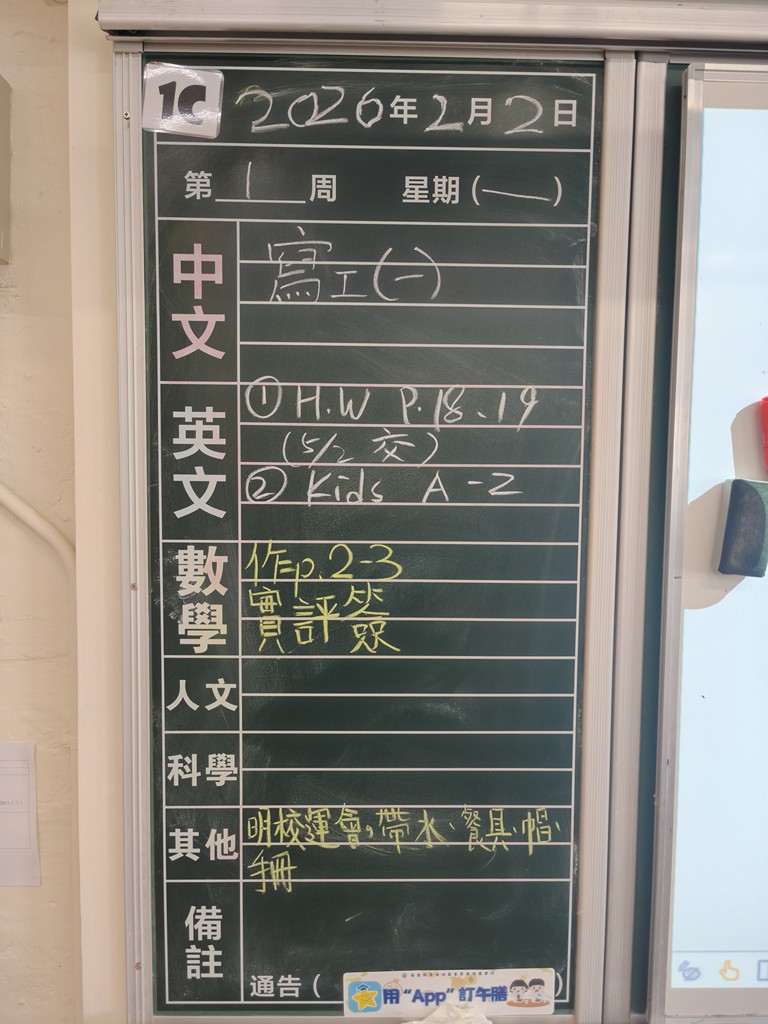 1C 2026年2月2日
第1周 星期(一)
中文 寫工(一)
英文 ① H.W P.18、19
(5/2 交)
② Kids A-Z
數學 作=p.2-3
實評簽
人文
科學
其他 明校運會,帶水、餐具、帽、
手冊
備註
通告(
)
用“App”訂午膳